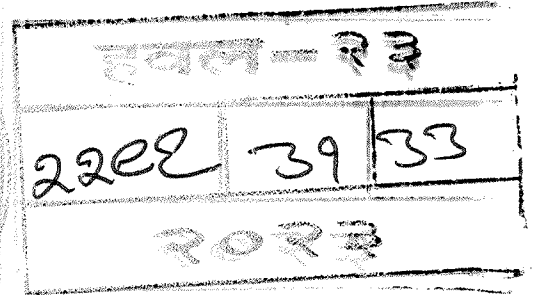 हवल - २३
२२९९ ३१ ३३
२०२३